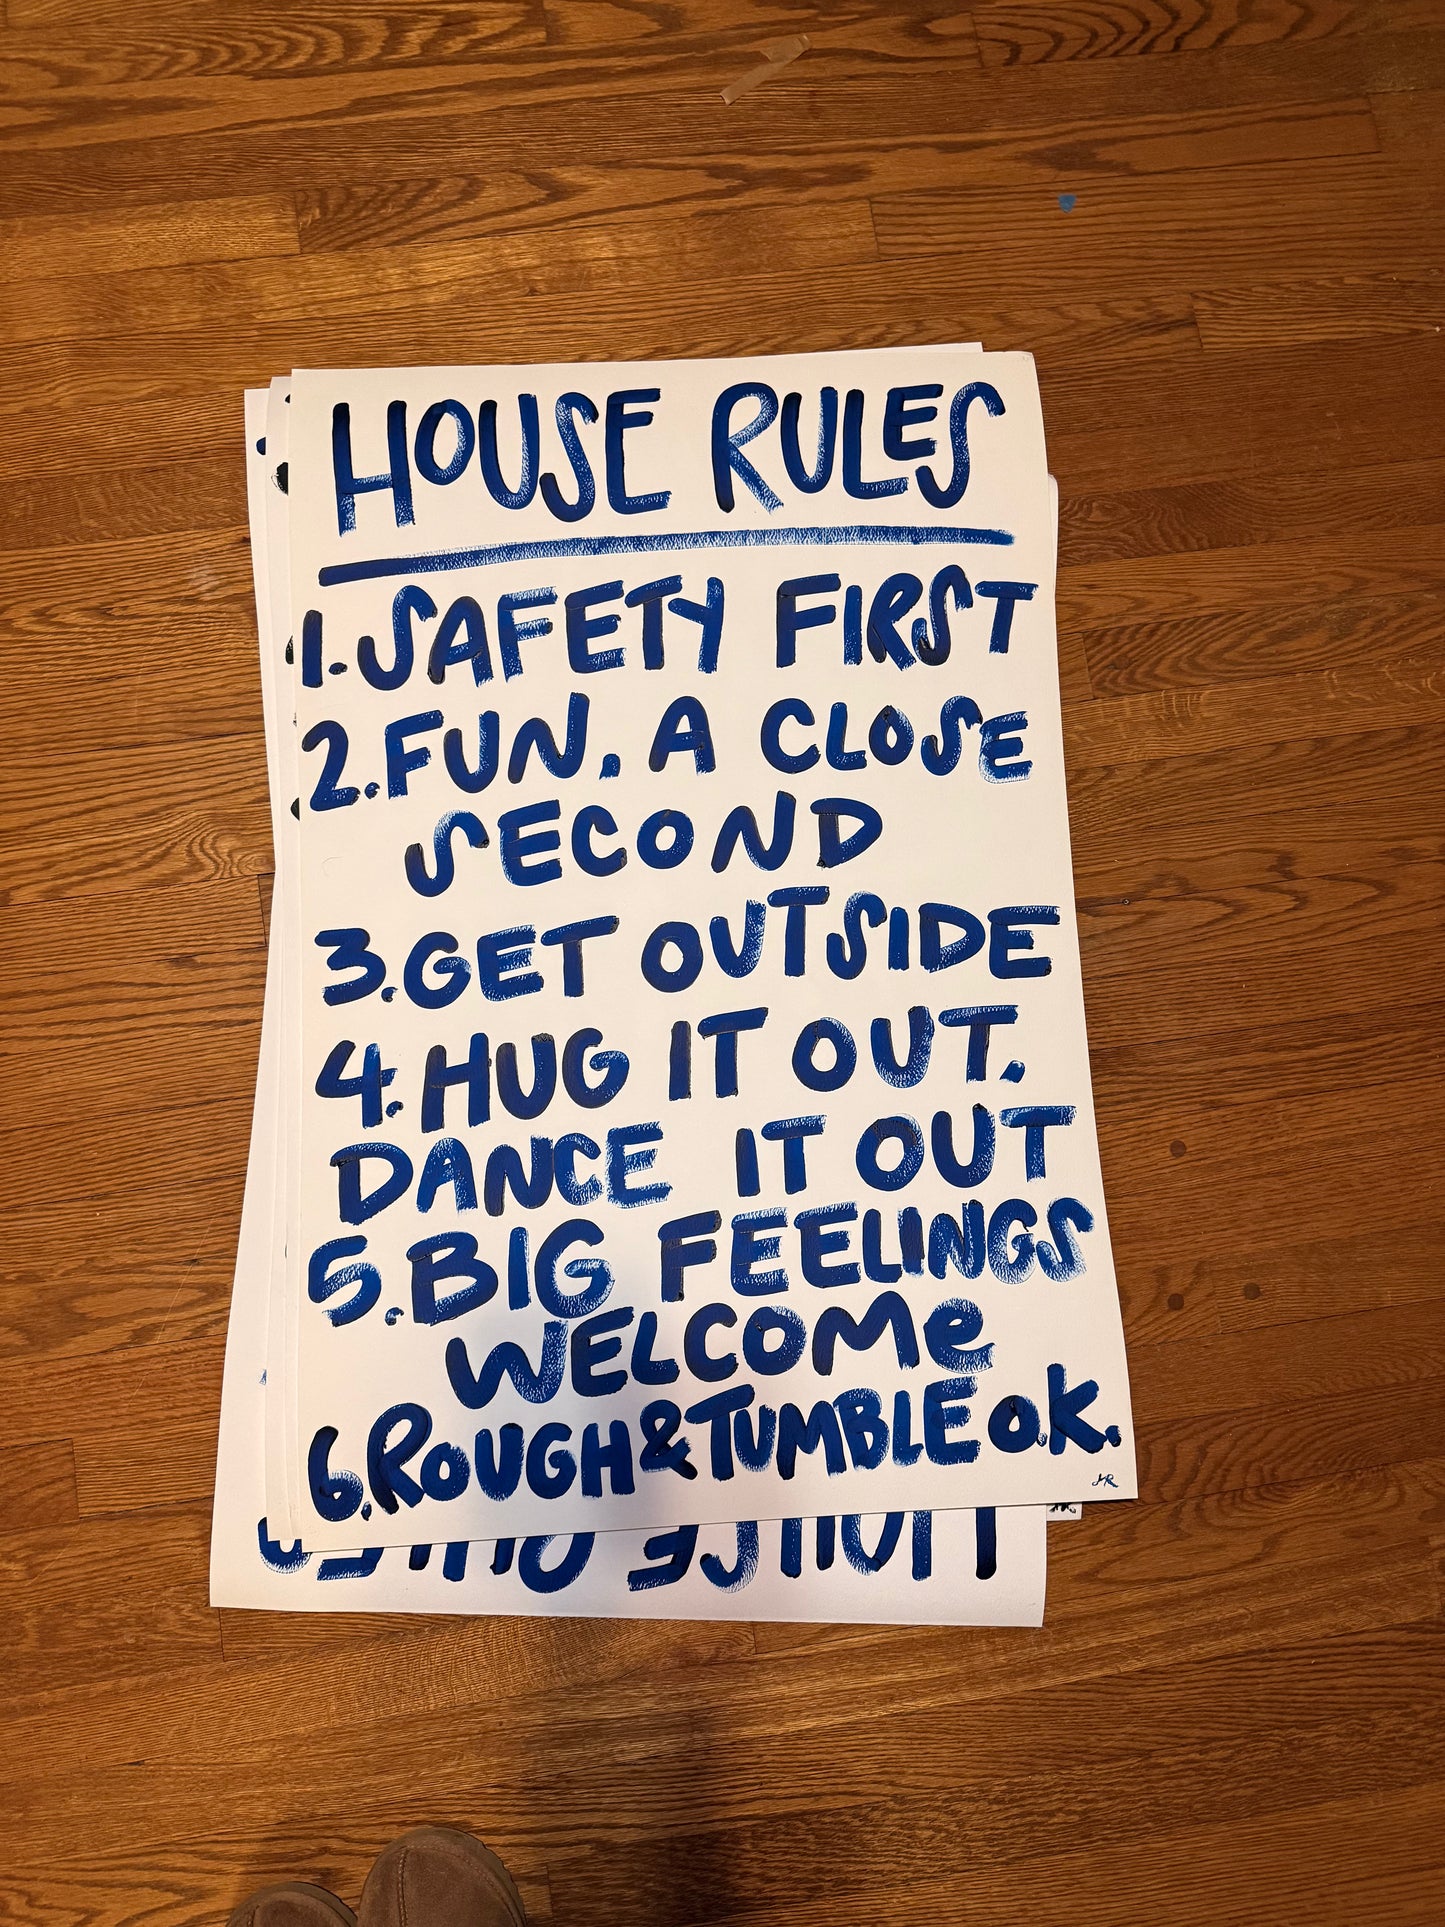 HOUSE RULES
1. SAFETY FIRST
2. FUN, A CLOSE
SECOND
3. GET OUTSIDE
4. HUG IT OUT,
DANCE IT OUT
5. BIG FEELINGS
WELCOMe
6. ROUGH & TUMBLE o.k.
MR